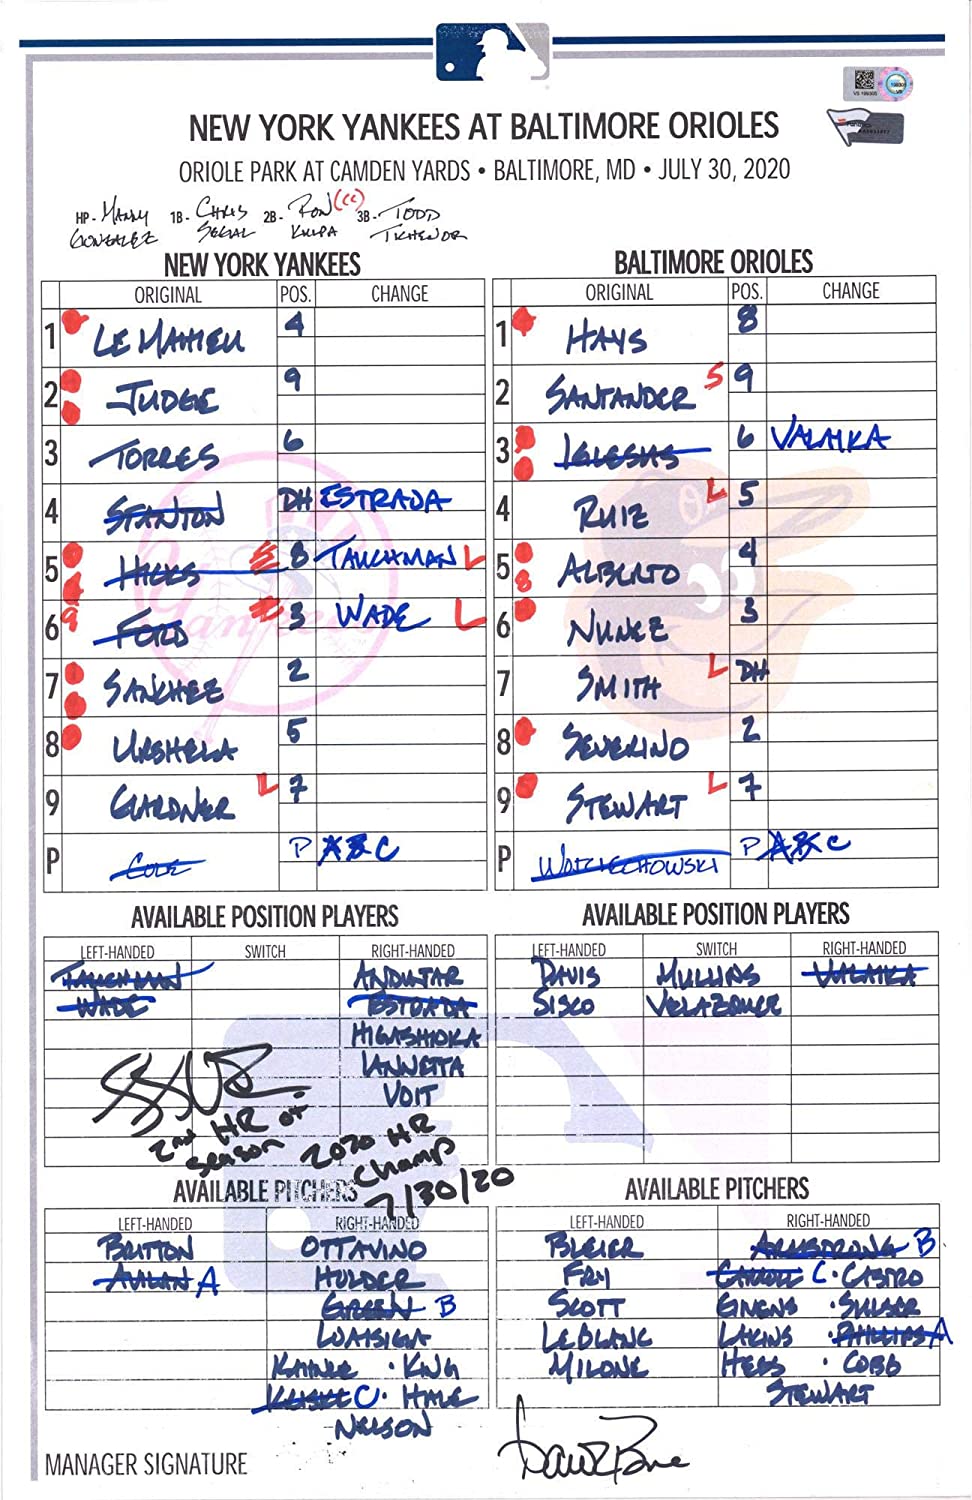 NEW YORK YANKEES AT BALTIMORE ORIOLES
ORIOLE PARK AT CAMDEN YARDS • BALTIMORE, MD • JULY 30, 2020
HP- MANNY GONZALEZ 1B- CHRIS SEGAL 2B- RON KULPA (CC) 3B- TODD TICHENOR
NEW YORK YANKEES
ORIGINAL POS. CHANGE
1 LEMAHIEU 4
2 JUDGE 9
3 TORRES 6
4 STANTON DH ESTRADA
5 HICKS S 8 TAUCHMAN L
6 FORD 3 WADE L
7 SANCHEZ 2
8 URSHELA 5
9 GARDNER L 7
P COLE P A B C
BALTIMORE ORIOLES
ORIGINAL POS. CHANGE
1 HAYS 8
2 SANTANDER S 9
3 IGLESIAS 6 VALAIKA
4 RUIZ L 5
5 ALBERTO 4
6 NUNEZ 3
7 SMITH L DH
8 SEVERINO 2
9 STEWART L 7
P WOJCIECHOWSKI P A B C
AVAILABLE POSITION PLAYERS
LEFT-HANDED SWITCH RIGHT-HANDED
TAUCHMAN ANDUJAR
WADE ESTRADA
HIGASHIOKA
IANNETTA
VOIT
AVAILABLE POSITION PLAYERS
LEFT-HANDED SWITCH RIGHT-HANDED
DAVIS MULLINS VALAIKA
SISCO VELAZQUEZ
2nd HR of
Season
2020 HR
Champ
7/30/20
AVAILABLE PITCHERS
LEFT-HANDED RIGHT-HANDED
BRITTON OTTAVINO
AVILAN A HOLDER
GREEN B
LOAISIGA
KAHNLE · KING
C · HALE
NELSON
AVAILABLE PITCHERS
LEFT-HANDED RIGHT-HANDED
BLEIER ARMSTRONG B
FRY CARROLL C · CASTRO
SCOTT GIVENS · SULSER
LEBLANC LAKINS · PHILLIPS A
MILONE HESS · COBB
STEWART
MANAGER SIGNATURE